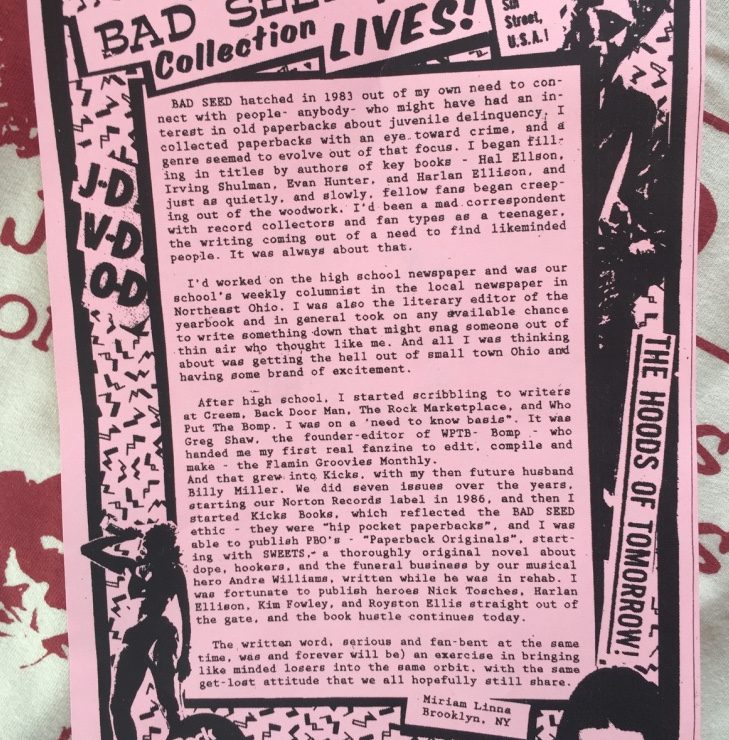 BAD SEED
Collection LIVES!
5th
Street,
U.S.A.!
BAD SEED hatched in 1983 out of my own need to con-
nect with people- anybody- who might have had an in-
terest in old paperbacks about juvenile delinquency. I
collected paperbacks with an eye toward crime, and a
genre seemed to evolve out of that focus. I began fill-
ing in titles by authors of key books - Hal Ellson,
Irving Shulman, Evan Hunter, and Harlan Ellison, and
just as quietly, and slowly, fellow fans began creep-
ing out of the woodwork. I'd been a mad correspondent
with record collectors and fan types as a teenager,
the writing coming out of a need to find likeminded
people. It was always about that.
I'd worked on the high school newspaper and was our
school's weekly columnist in the local newspaper in
Northeast Ohio. I was also the literary editor of the
yearbook and in general took on any available chance
to write something down that might snag someone out of
thin air who thought like me. And all I was thinking
about was getting the hell out of small town Ohio and
having some brand of excitement.
After high school, I started scribbling to writers
at Creem, Back Door Man, The Rock Marketplace, and Who
Put The Bomp. I was on a 'need to know basis". It was
Greg Shaw, the founder-editor of WPTB- Bomp - who
handed me my first real fanzine to edit, compile and
make - the Flamin Groovies Monthly.
And that grew into Kicks, with my then future husband
Billy Miller. We did seven issues over the years,
starting our Norton Records label in 1986, and then I
started Kicks Books, which reflected the BAD SEED
ethic - they were "hip pocket paperbacks", and I was
able to publish PBO's - "Paperback Originals", start-
ing with SWEETS,- a thoroughly original novel about
dope, hookers, and the funeral business by our musical
hero Andre Williams, written while he was in rehab. I
was fortunate to publish heroes Nick Tosches, Harlan
Ellison, Kim Fowley, and Royston Ellis straight out of
the gate, and the book hustle continues today.
The written word, serious and fan-bent at the same
time, was and forever will be) an exercise in bringing
like minded losers into the same orbit, with the same
get-lost attitude that we all hopefully still share.
Miriam Linna
Brooklyn, NY
J-D
V-D
O-D
THE HOODS OF TOMORROW!